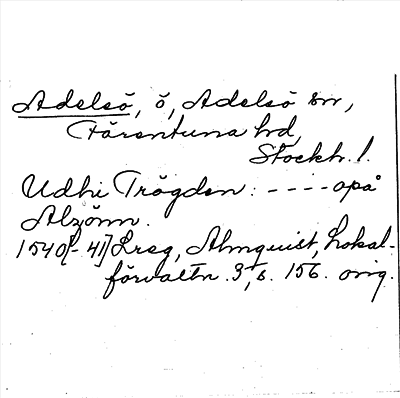 Adelsö, ö, Adelsö sn,
Färentuna hd,
Stockh. l.
Udhi Trögden: - - - - opå
Alzönn.
1540[-41] Lreg, Almquist, Lokal-
förvaltn. 3, s. 156. orig.